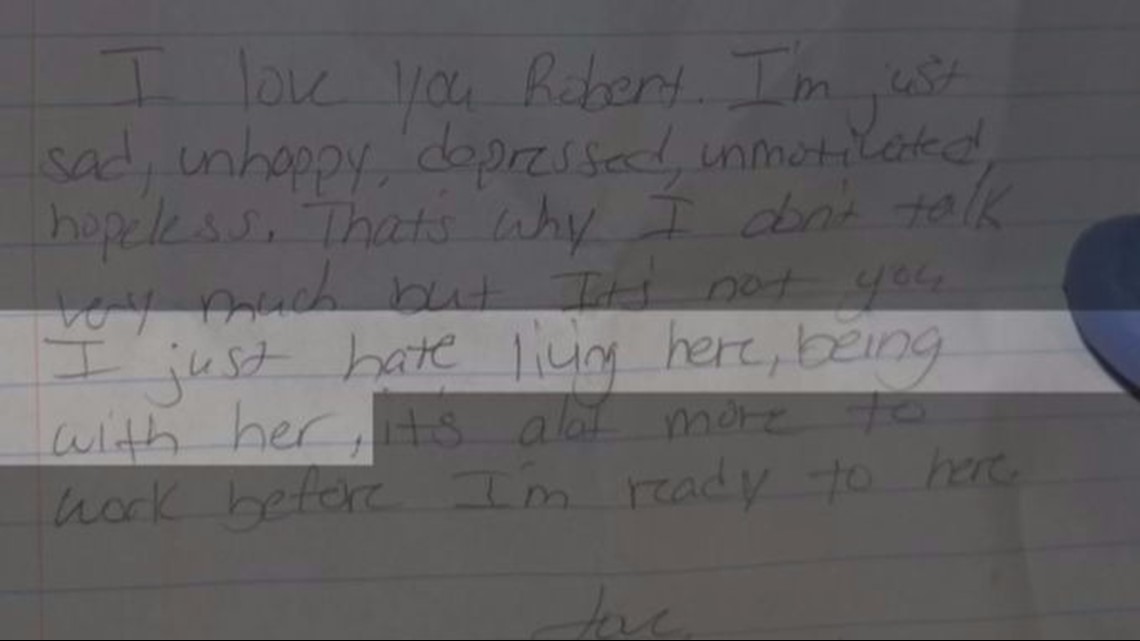 I love you Robert. I'm just
sad, unhappy, depressed, unmotivated,
hopeless. That's why I don't talk
very much but It's not you
I just hate living here, being
with her, it's alot more to
work before I'm ready to here